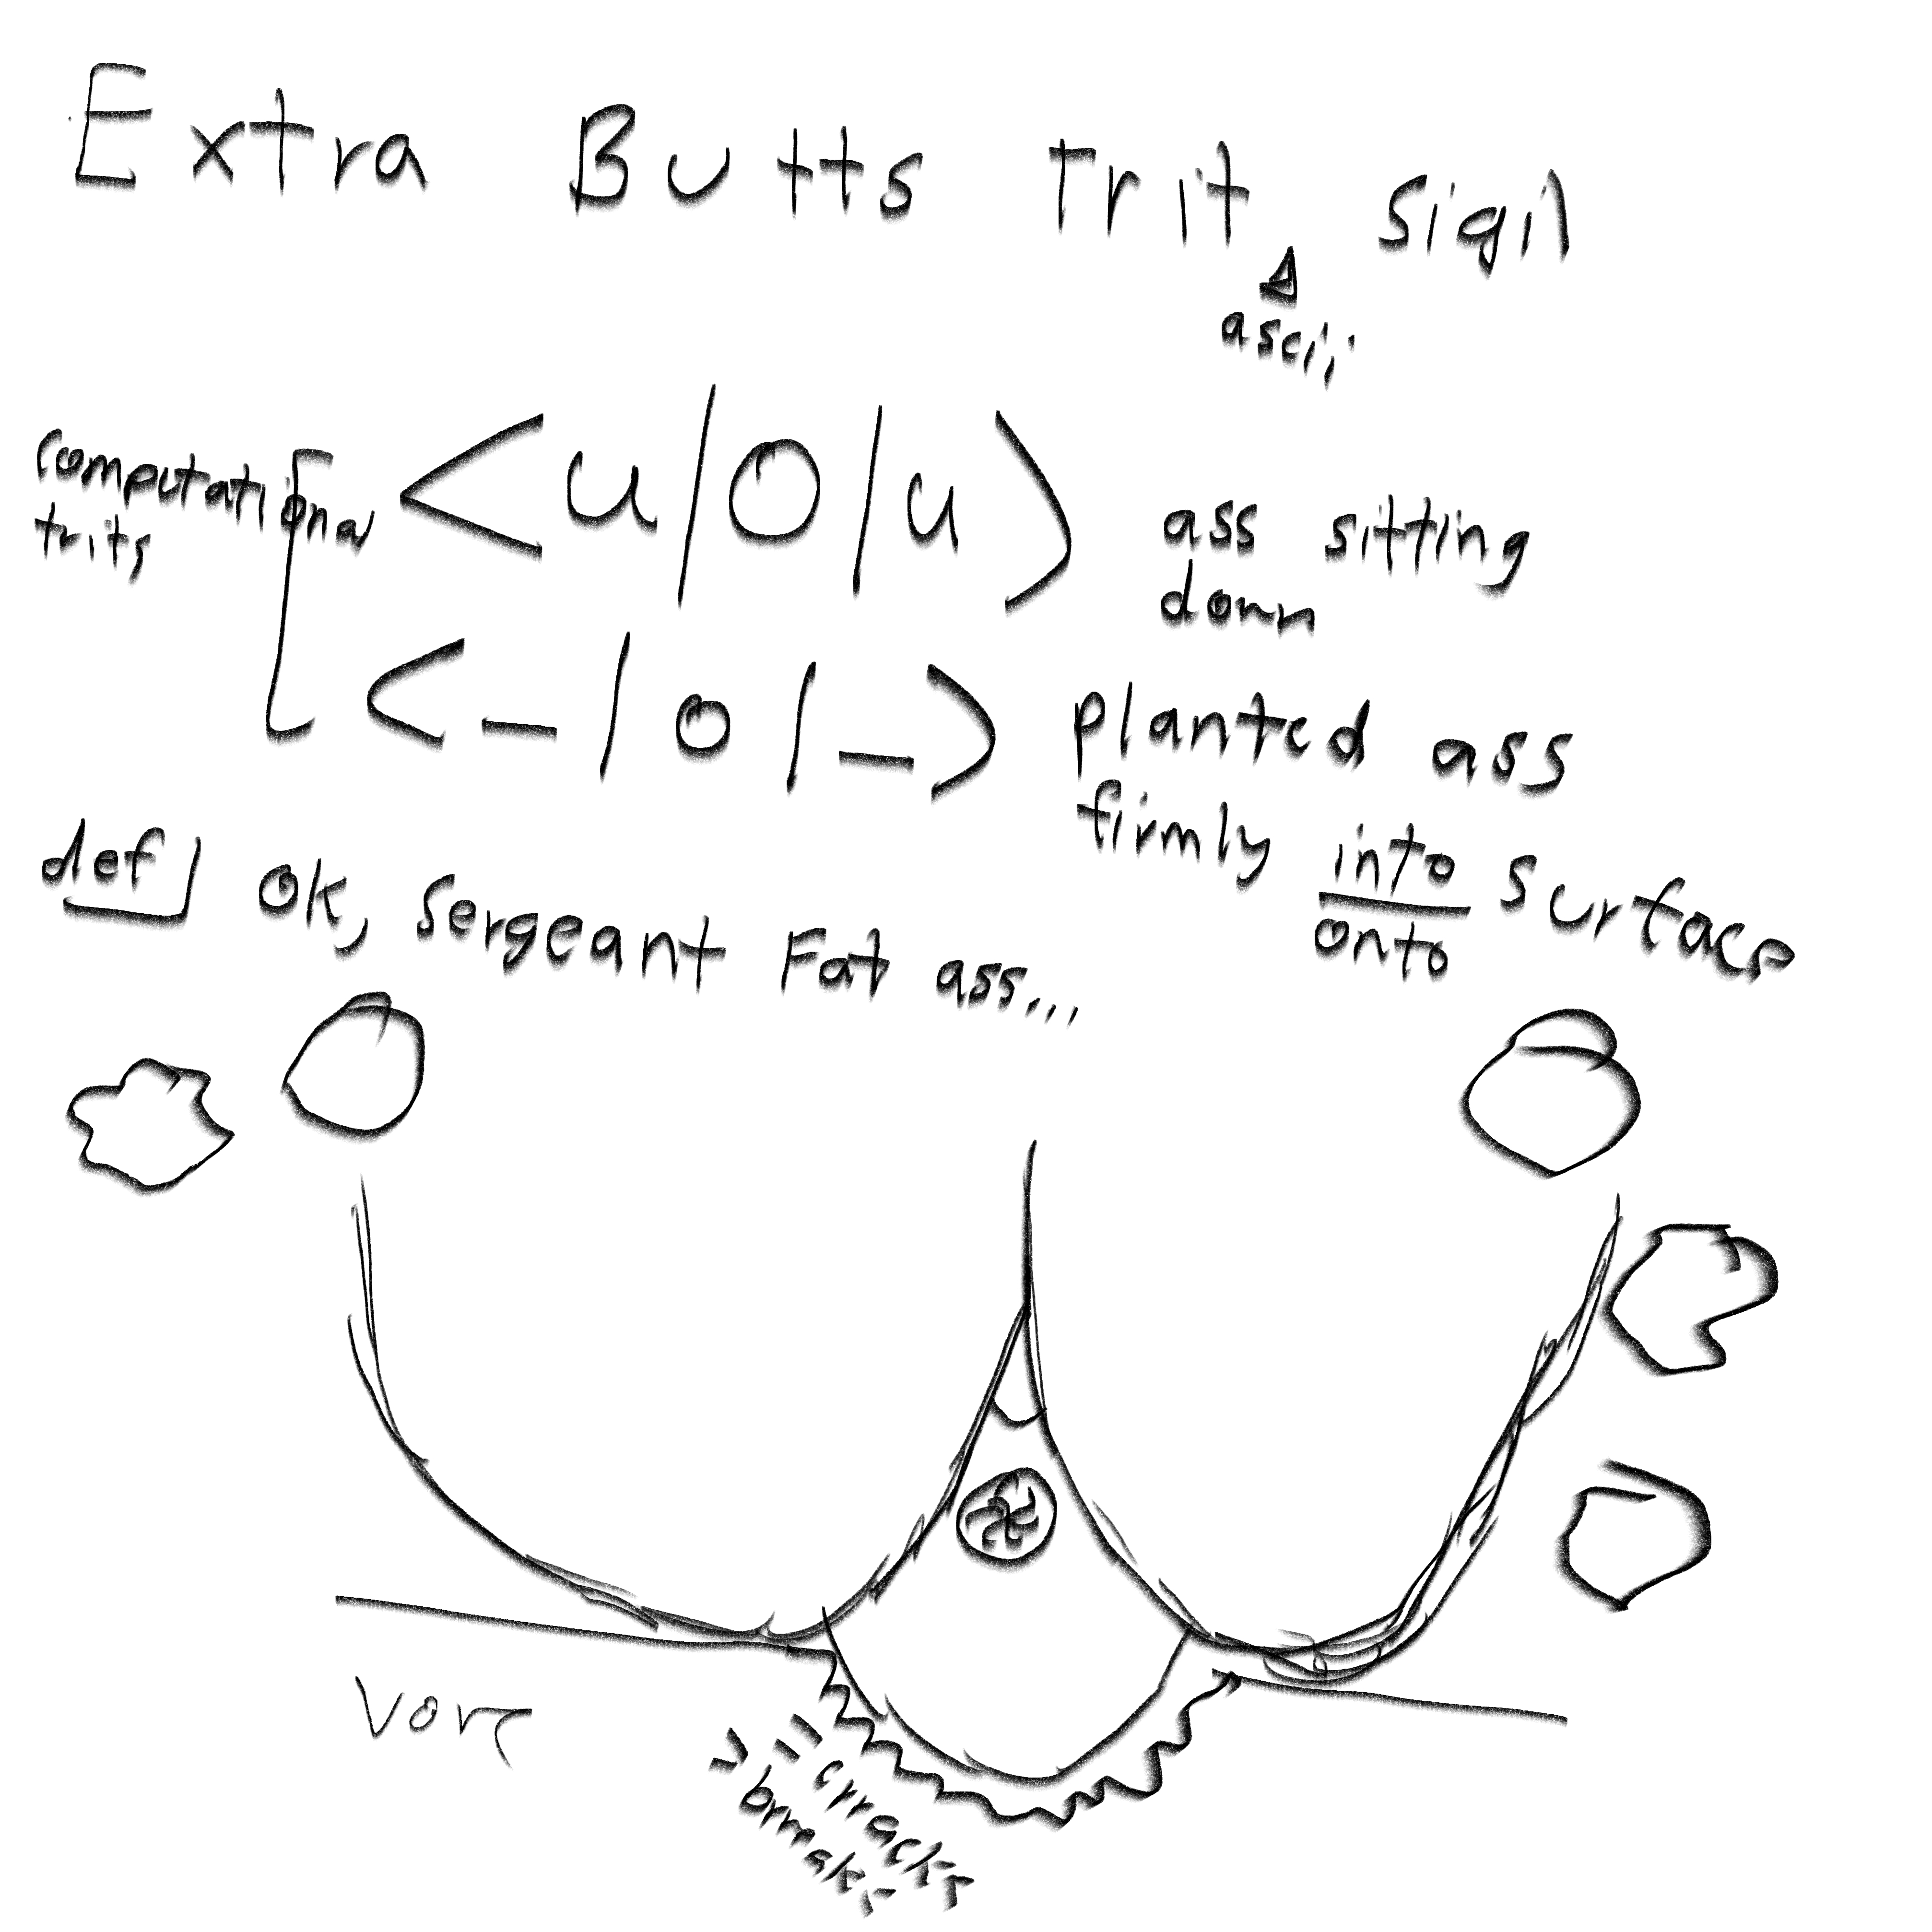 Extra Butts trit sigil
ascii
computational
trits
<u/O/u>
ass sitting
down
<-/o/_>
planted ass
firmly into surface
onto
def] ok, Sergeant Fat ass...
vore
cracks
breaks